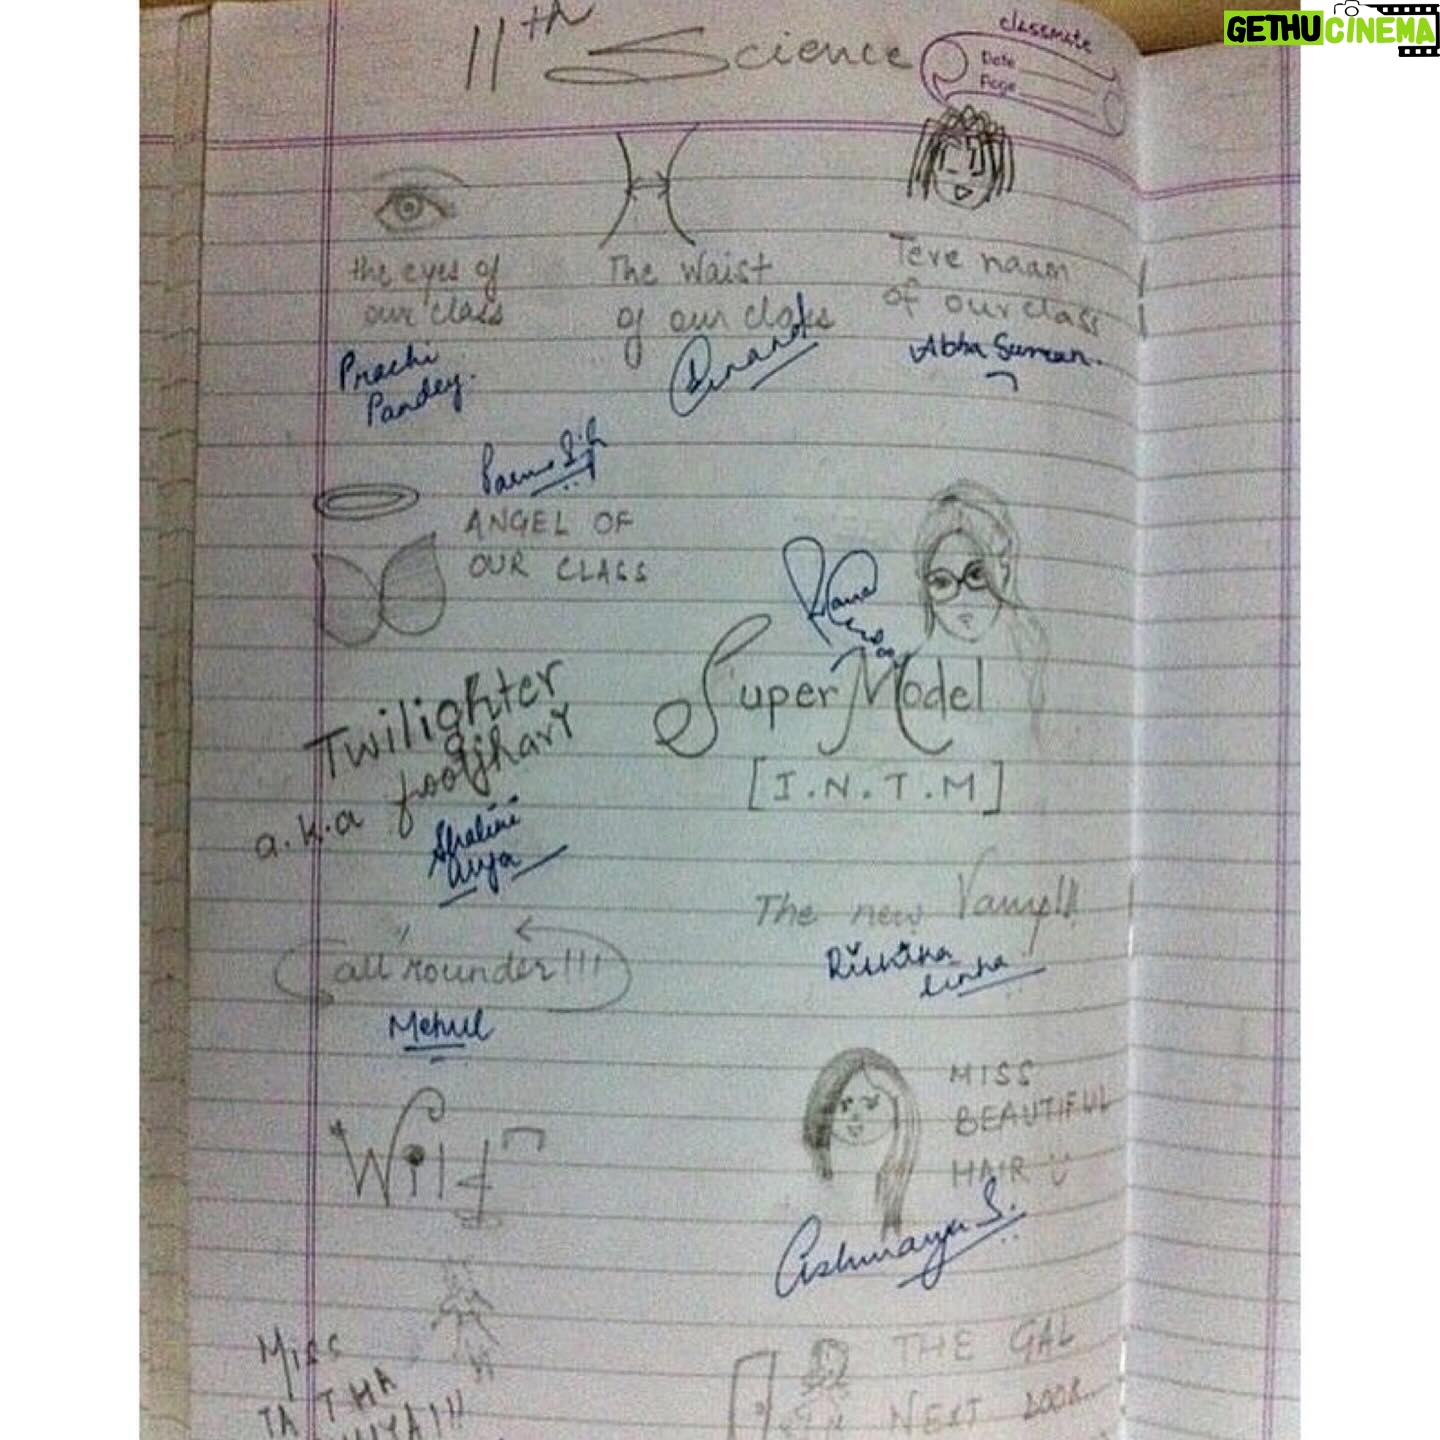 GETHU CINEMA
11th Science
classmate
Date
Page
the eyes of
our class
Prachi
Pandey.
The Waist
of our class
Tere naam
of our class
Abha Suman.
ANGEL OF
OUR CLASS
Super Model
[I.N.T.M]
Twilighter
a.k.a
Shalini
Arya
The new Vamp!!
all rounder!!!
Mehul
Wild
MISS
BEAUTIFUL
HAIR
Aishwarya S.
MISS
THE GAL
NEXT DOOR